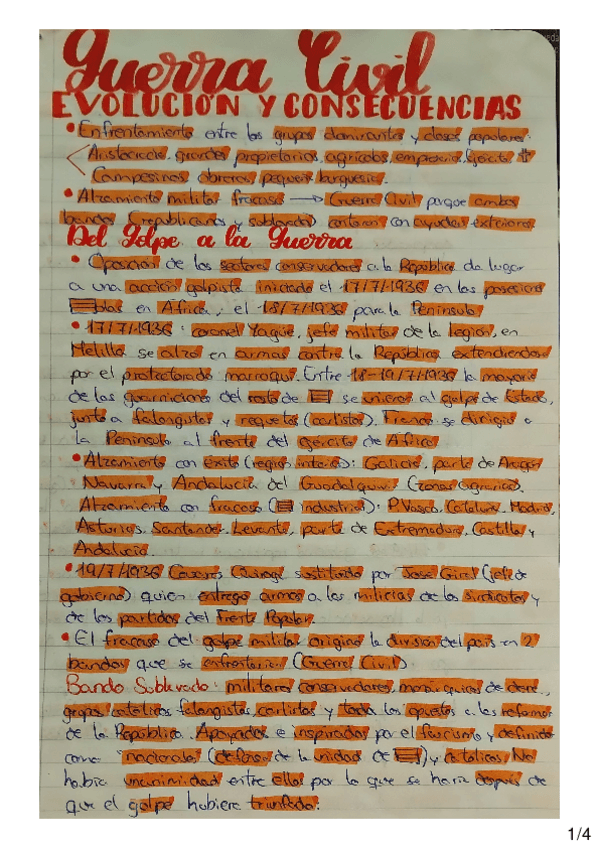 Guerra Civil
EVOLUCIÓN Y CONSECUENCIAS
• Enfrentamiento entre los grupos dominantes y clases populares:
Aristocracia, grandes propietarios agrícolas, empresarios, Ejército
Campesinos obreros, pequeña burguesía.
• Alzamiento militar fracasa → Guerra Civil porque ambos
bandos (republicanos y sublevados) contaron con ayudas exteriores
Del golpe a la Guerra
• Oposición de los sectores conservadores a la República da lugar
a una acción golpista iniciada el 17/7/1936 en las posesiones
en África, el 18/7/1936 para la Península
• 17/7/1936: coronel Yagüe, jefe militar de la legion, en
Melilla, se alzó en armas contra la República extendiendose
por el protectorado marroquí. Entre 18-19/7/1936 la mayoría
de las guarniciones del resto de se unieron al golpe de Estado,
junto a falangistas y requetés (carlistas). Franco se dirigió a
la Península al frente del ejército de África
• Alzamiento con éxito (region interior): Galicia, parte de Aragón
Navarra y Andalucía del Guadalquivir (zonas agrarias).
Alzamiento con fracaso ( industrial): P.Vasco, Cataluña, Madrid,
Asturias, Santander, Levante, parte de Extremadura, Castilla y
Andalucía.
• 19/7/1936 Casares Quiroga sustituido por Jose Giral (jefe de
gobierno) quien entregó armas a las milicias de los sindicatos y
de los partidos del Frente Popular.
• El fracaso del golpe militar origina la división del país en 2
bandos que se enfrentarían (Guerra Civil)
Bando Sublevado: militares conservadores, monárquicos de dere,
grupos católicos falangistas, carlistas y todos los opuestos a las reformas
de la República. Apoyados e inspirados por el fascismo y definidos
como "nacionales" (defensa de la unidad de ) y católicos. No
había unanimidad entre ellos por lo que se haría después de
que el golpe hubiera triunfado.
1/4